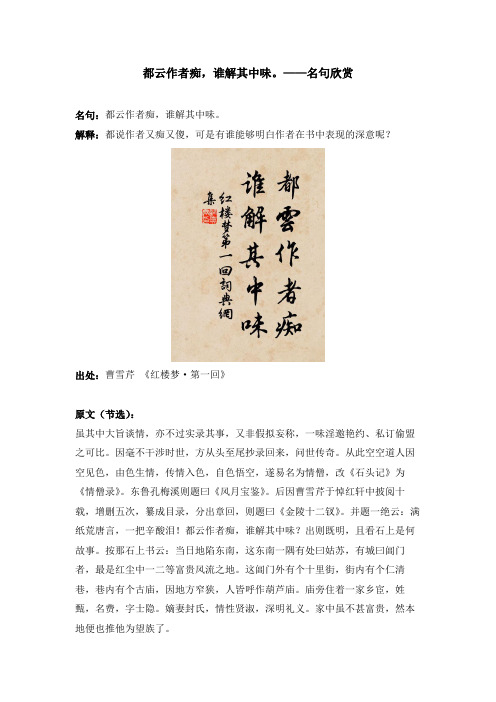 都云作者痴，谁解其中味。——名句欣赏
名句：都云作者痴，谁解其中味。
解释：都说作者又痴又傻，可是有谁能够明白作者在书中表现的深意呢？
都雲作者痴
谁解其中味
红楼梦第一回詞典網
集
出处：曹雪芹 《红楼梦·第一回》
原文（节选）：
虽其中大旨谈情，亦不过实录其事，又非假拟妄称，一味淫邀艳约、私订偷盟
之可比。因毫不干涉时世，方从头至尾抄录回来，问世传奇。从此空空道人因
空见色，由色生情，传情入色，自色悟空，遂易名为情僧，改《石头记》为
《情僧录》。东鲁孔梅溪则题曰《风月宝鉴》。后因曹雪芹于悼红轩中披阅十
载，增删五次，纂成目录，分出章回，则题曰《金陵十二钗》。并题一绝云：满
纸荒唐言，一把辛酸泪！都云作者痴，谁解其中味？出则既明，且看石上是何
故事。按那石上书云：当日地陷东南，这东南一隅有处曰姑苏，有城曰阊门
者，最是红尘中一二等富贵风流之地。这阊门外有个十里街，街内有个仁清
巷，巷内有个古庙，因地方窄狭，人皆呼作葫芦庙。庙旁住着一家乡宦，姓
甄，名费，字士隐。嫡妻封氏，情性贤淑，深明礼义。家中虽不甚富贵，然本
地便也推他为望族了。